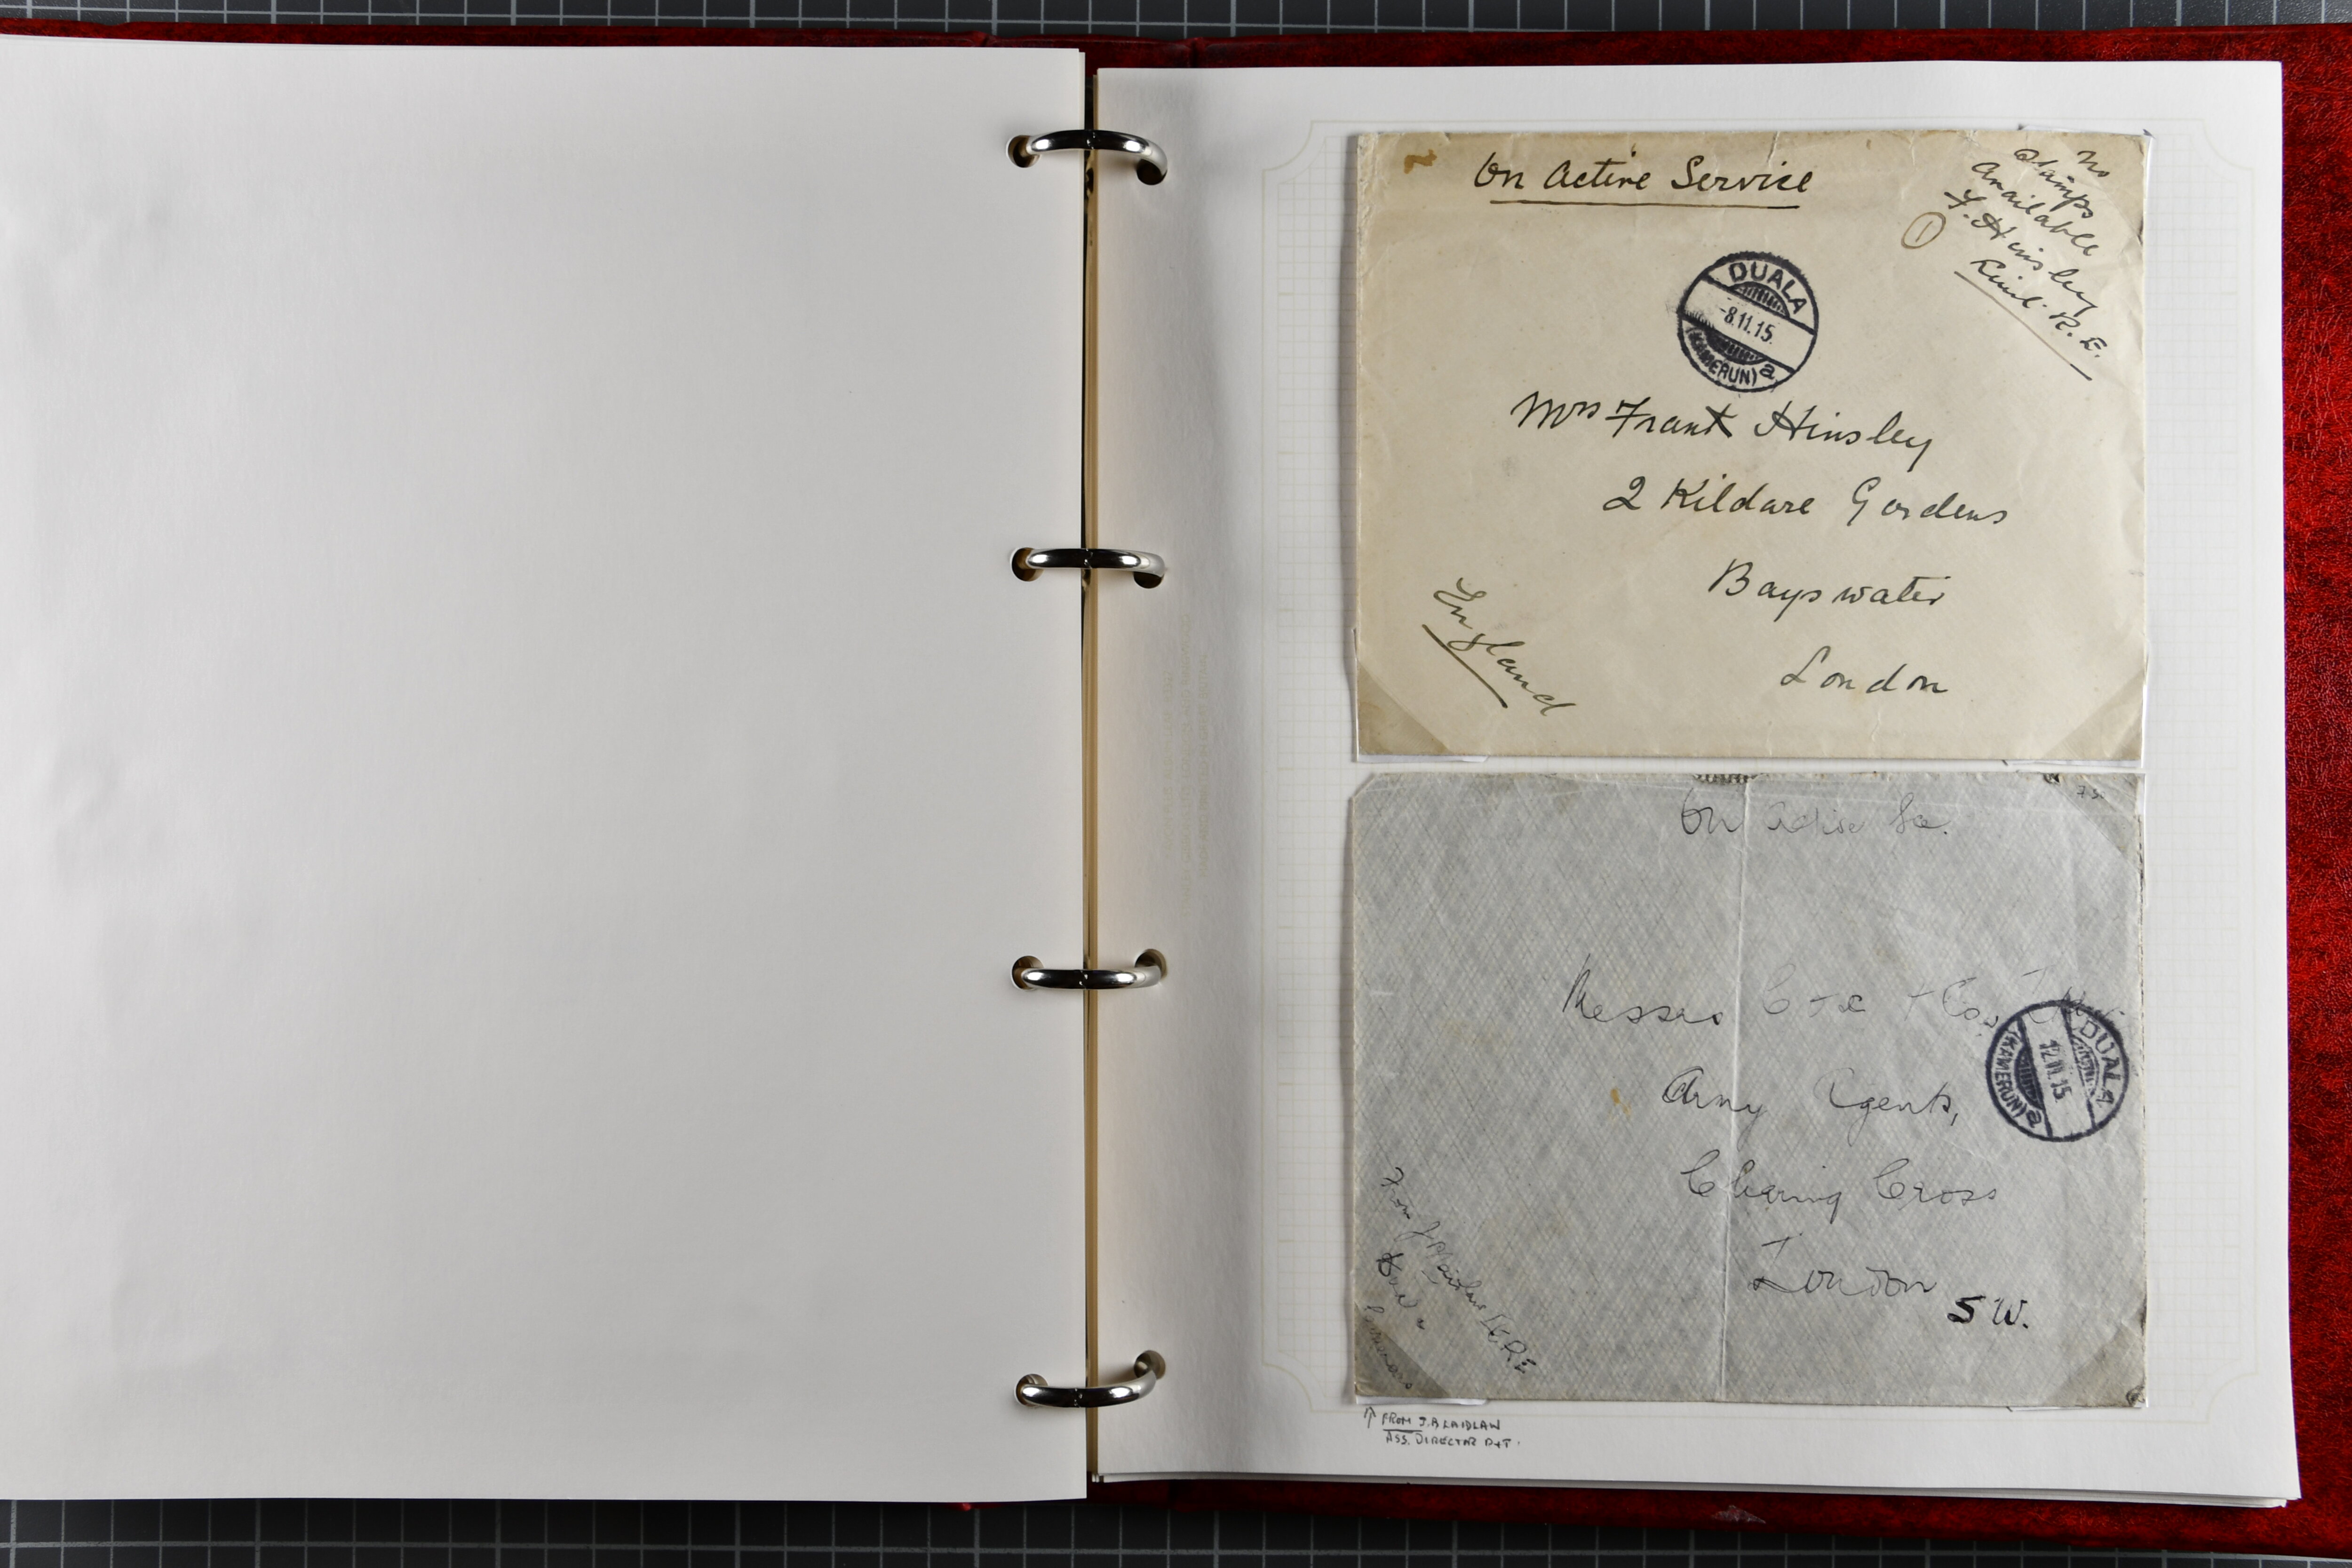 On Active Service
No
Stamps
Available
F. Hinsley
Lieut. R. E.
1
DUALA
-8.11.15.
(KAMERUN) a
Mrs Frank Hinsley
2 Kildare Gardens
Bayswater
London
England
On Active Se.
Messrs Cox & Co.
DUALA
(KAMERUN) a
Army Agents,
Charing Cross
London
S W.
From
Duala
↑ FROM J.A LAIDLAW
ASS. DIRECTOR P&T.